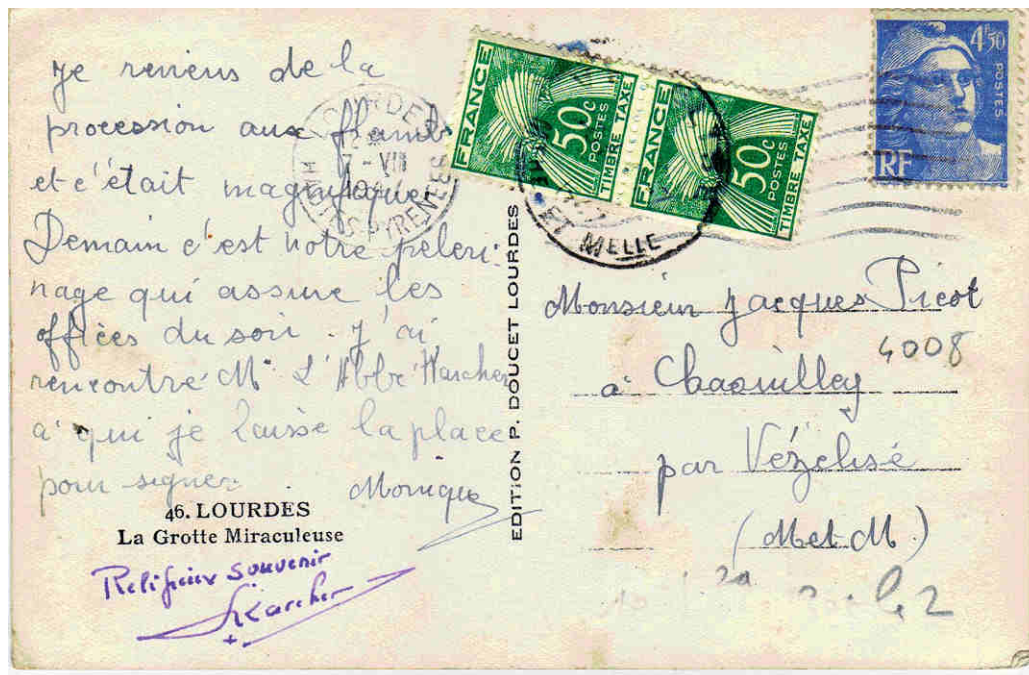 Je reviens de la
procession aux flambs
et c'était magnifique
Demain c'est notre pèleri-
nage qui assure les
offices du soir. J'ai
rencontré Mr L'Abbé Karcher
à qui je laisse la place
pour signer. Monique
46. LOURDES
La Grotte Miraculeuse
Religieux souvenir
Karcher
EDITION P. DOUCET LOURDES
LOURDES
7-VII
HTES PYRENEES
FRANCE
50c
POSTES
TIMBRE TAXE
FRANCE
50c
POSTES
TIMBRE TAXE
ET MELLE
4f50
POSTES
RF
Monsieur Jacques Picot
4008
à Chaouilley
par Vézelise
(M et M)